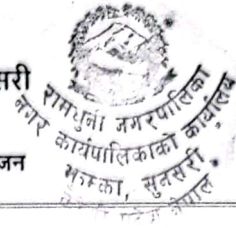 सरी
रामधुनी नगरपालिका
नगर कार्यपालिकाको कार्यालय
जन
भुल्का, सुनसरी
नेपाल